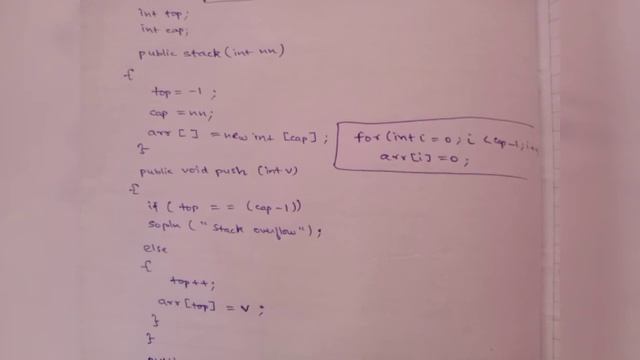 int top;
int cap;
public stack (int nn)
{
top = -1 ;
cap = nn;
arr [ ] = new int [cap] ;
}
for (int i = 0 ; i < cap-1 ; i++
arr [i] = 0 ;
public void push (int v)
{
if ( top = = (cap-1))
sopln ( " stack overflow " ) ;
else
{
top++ ;
arr [top] = v ;
}
}